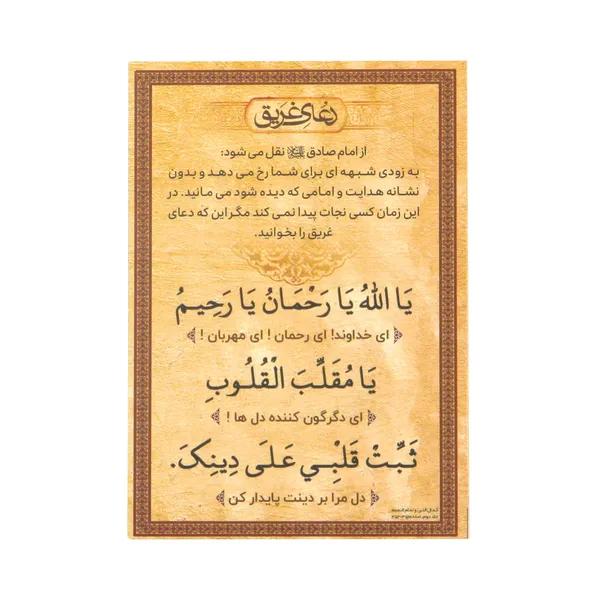 دعای غریق
از امام صادق نقل می شود:
به زودی شبهه ای برای شما رخ می دهد و بدون
نشانه هدایت و امامی که دیده شود می مانید. در
این زمان کسی نجات پیدا نمی کند مگر این که دعای
غریق را بخوانید.
یَا اللهُ یَا رَحْمَانُ یَا رَحِیمُ
ای خداوند! ای رحمان ! ای مهربان !
یَا مُقَلِّبَ الْقُلُوبِ
ای دگرگون کننده دل ها !
ثَبِّتْ قَلْبِي عَلَی دِینِکَ.
دل مرا بر دینت پایدار کن
کمال الدین و تمام النعمه